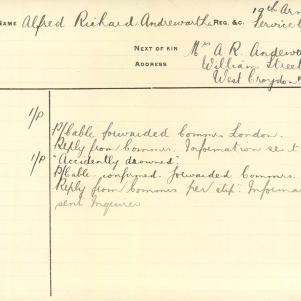 NAME Alfred Richard Andrewartha REG. &C. 19th Arm
Service
NEXT OF KIN Mrs A R Andrewar
ADDRESS William Street
West Croydon
1/P
P/Cable forwarded Commrs London.
Reply from Commrs. Information sent
1/P "Accidently drowned".
P/Cable confirmed. forwarded Commrs.
Reply from Commrs per slip. Informa
sent Inquirer